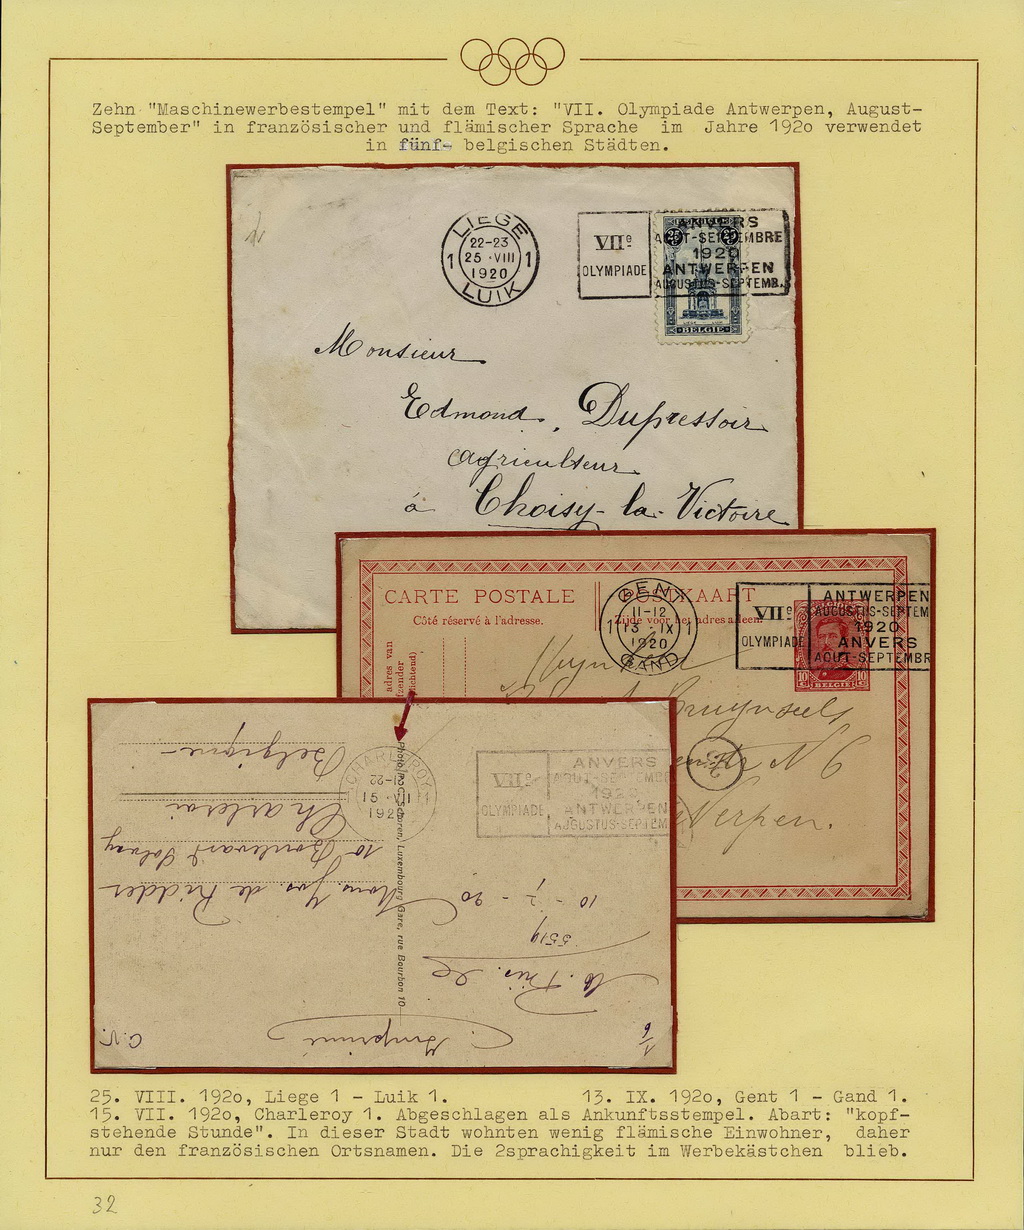 Zehn "Maschinewerbestempel" mit dem Text: "VII. Olympiade Antwerpen, August-
September" in französischer und flämischer Sprache im Jahre 192o verwendet
in fünf belgischen Städten.
LIEGE
22-23
1 25 ·VIII 1
1920
LUIK
VIIe
OLYMPIADE
ANVERS
AOUT-SEPTEMBRE
1920
ANTWERPEN
AUGUSTUS-SEPTEMB.
25 25
BELGIE
Monsieur
Edmond Dupressoir
Agriculteur
à Choisy-la-Victoire
CARTE POSTALE
POSTKAART
Côté réservé à l'adresse.
Zijde voor het adres alleen.
adres van
GENT
11-12
1 13 · IX 1
1920
GAND
VIIe
OLYMPIADE
ANTWERPEN
AUGUSTUS-SEPTEM
1920
ANVERS
AOUT-SEPTEMBR
10 10
BELGIE
Bruynseels
No 6
Antwerpen.
CHARLEROY
22-21
15 ·VII 1
1920
VIIe
OLYMPIADE
ANVERS
AOUT-SEPTEMBR
1920
ANTWERPEN
AUGUSTUS-SEPTEM
Photo C. Schoren, Luxembourg Gare, rue Bourbon 10
Imprimé
5519
10 - 7 - 20
Mons. Jos. de Ridder
10 Boulevard Solvay
Charleroi
Belgique
C.V.
25. VIII. 192o, Liege 1 - Luik 1. 13. IX. 192o, Gent 1 - Gand 1.
15. VII. 192o, Charleroy 1. Abgeschlagen als Ankunftsstempel. Abart: "kopf-
stehende Stunde". In dieser Stadt wohnten wenig flämische Einwohner, daher
nur den französischen Ortsnamen. Die 2sprachigkeit im Werbekästchen blieb.
32